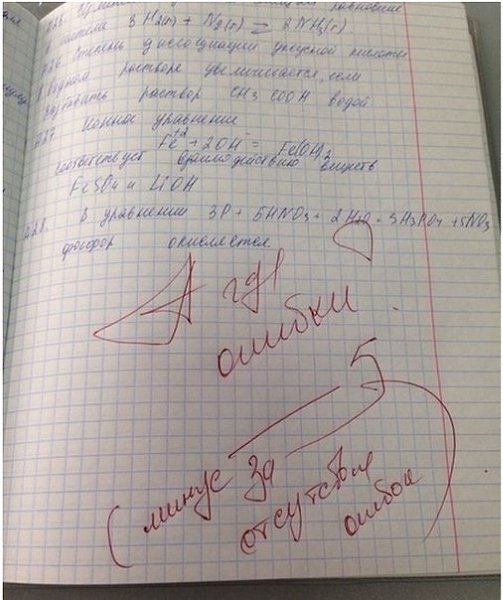 равновесие
в системе 3H2(г) + N2(г) ⇄ 2NH3(г).
A26 Степень диссоциации уксусной кислоты
в водном растворе увеличивается, если
разбавить раствор CH3COOH водой
A27 Ионное уравнение
Fe+2 + 2OH- = Fe(OH)2
соответствует взаимодействию веществ
FeSO4 и LiOH
A28. В уравнении 3P + 5HNO3 + 2H2O = 3H3PO4 + 5NO
фосфор окисляется
А где
ошибки ?
5-
(минус за
отсутствие
ошибок)